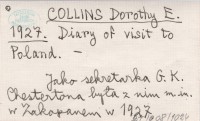 COLLINS Dorothy E.
1927. Diary of visit to
Poland. –
Jako sekretarka G. K.
Chestertona była z nim m.in.
w Zakopanem w 1927